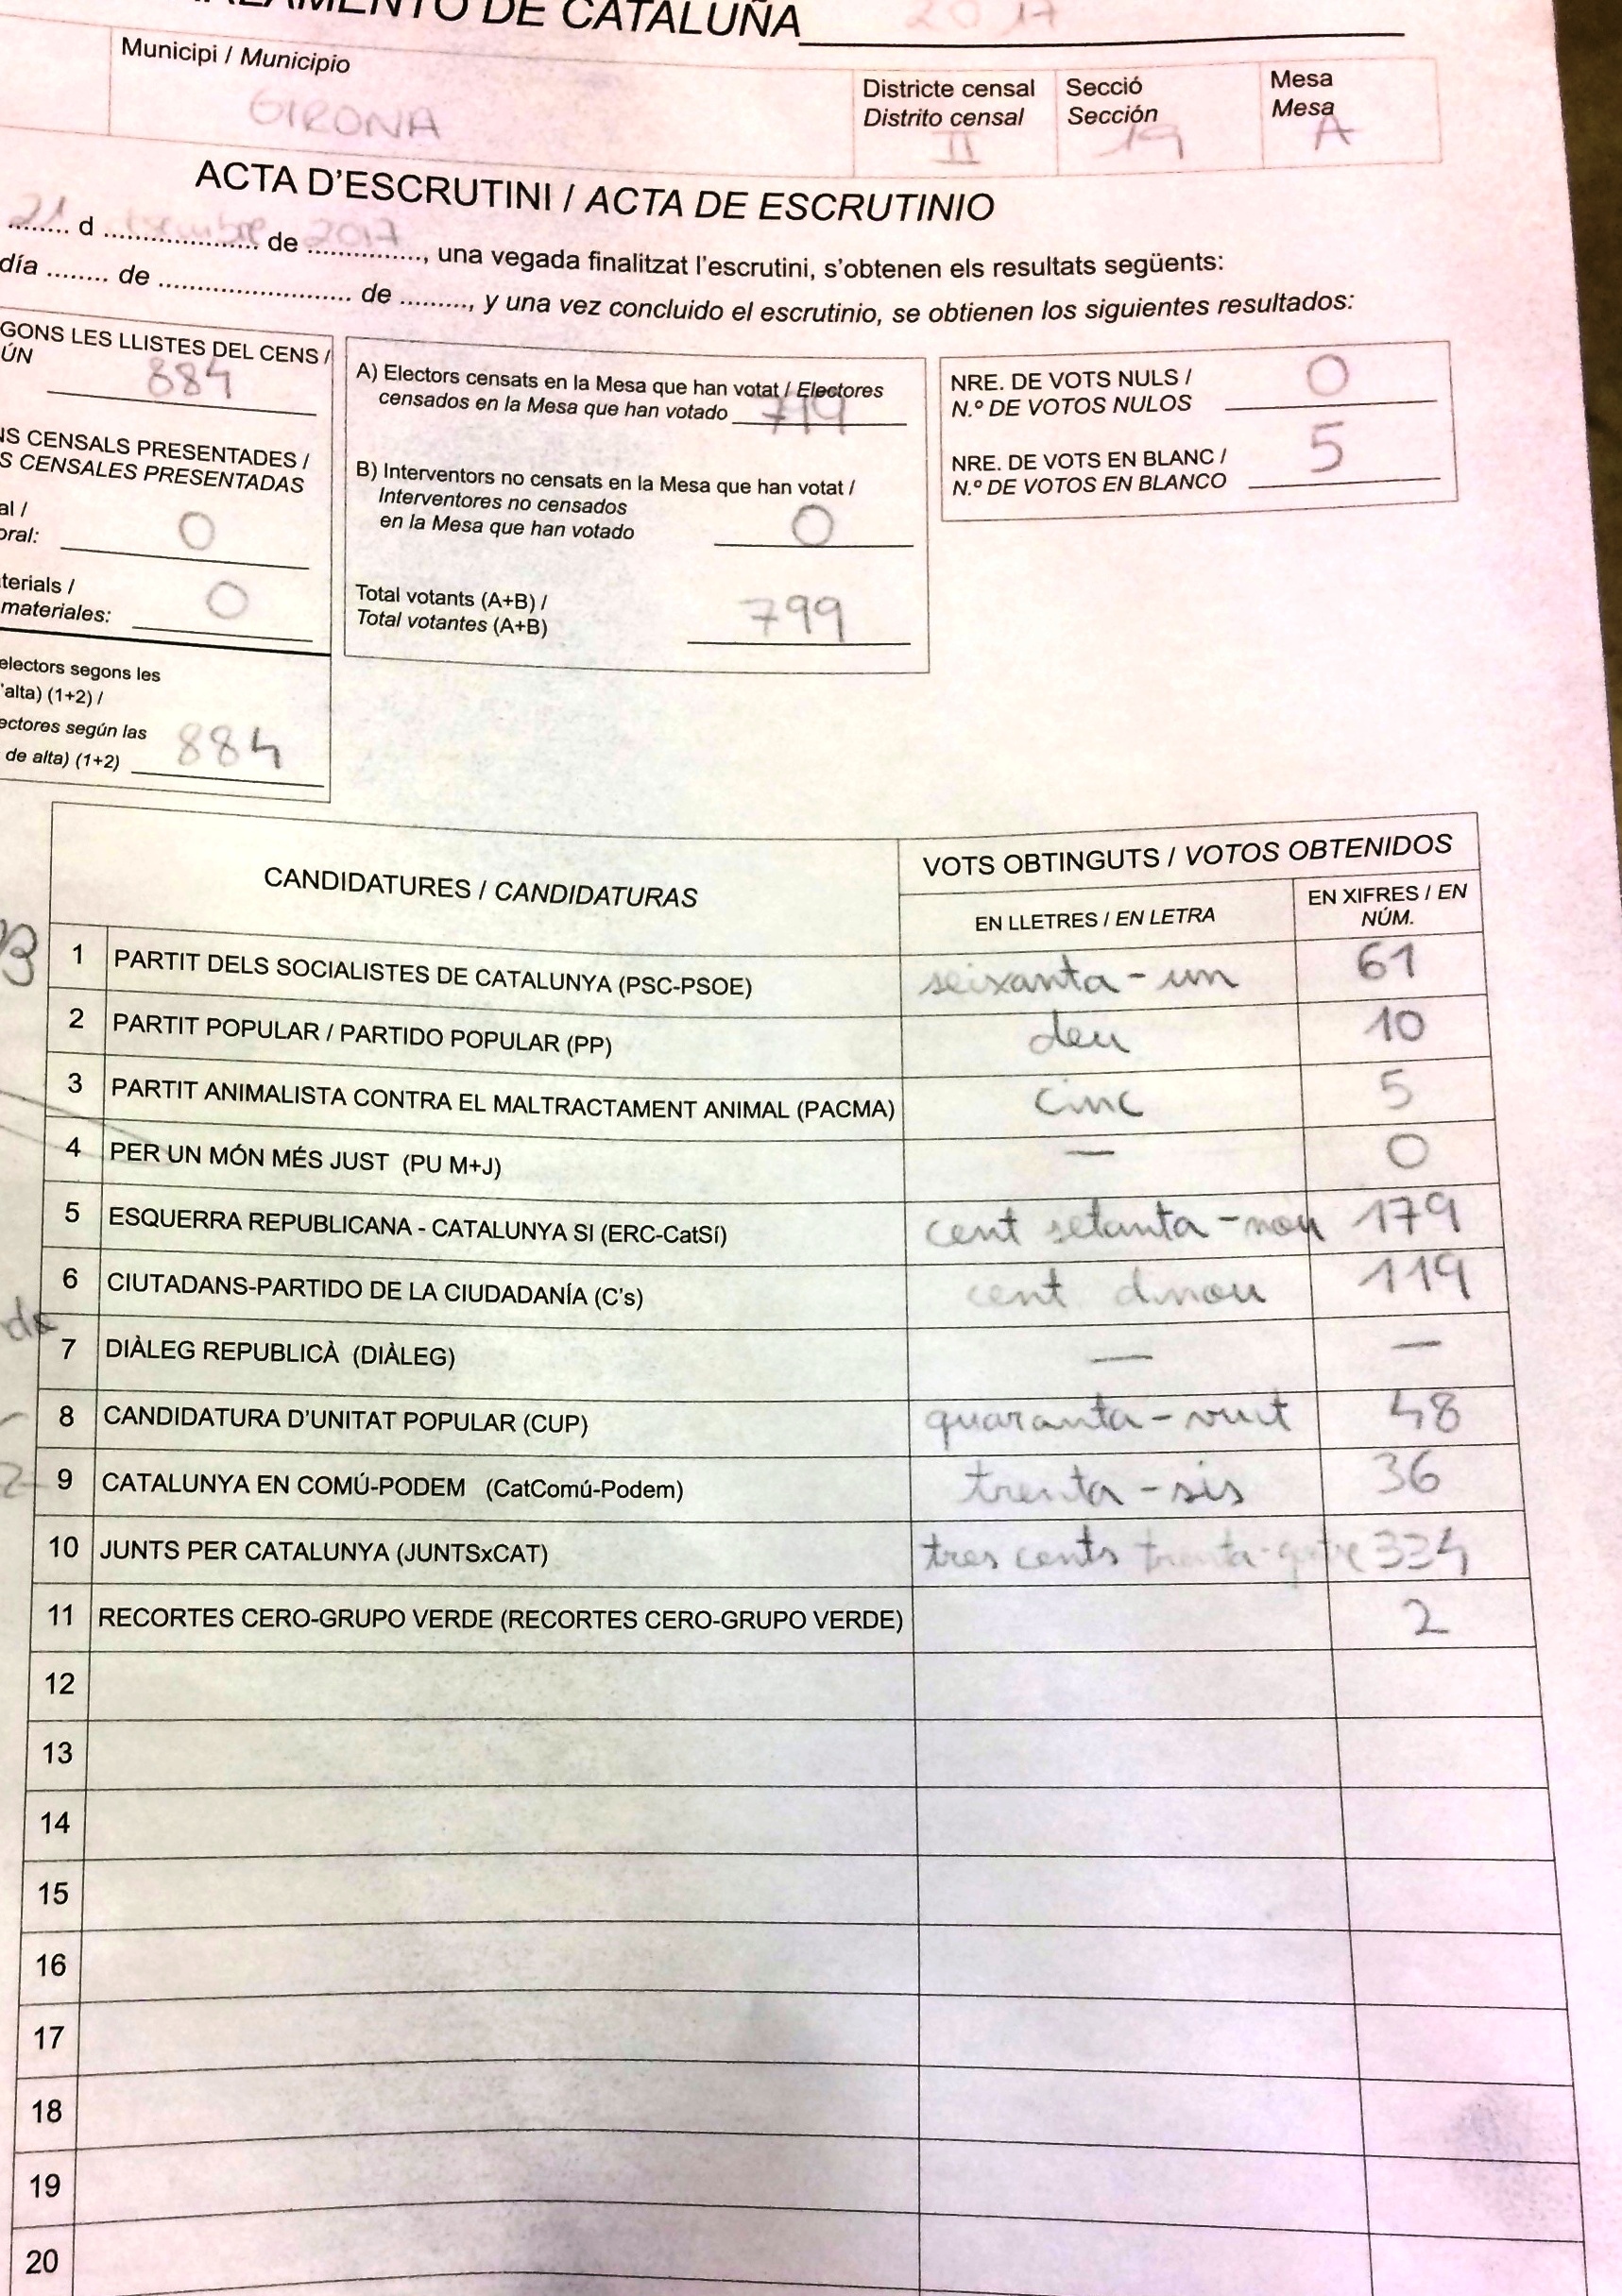 DE CATALUÑA 2017
Municipi / Municipio
GIRONA
Districte censal
Distrito censal
II
Secció
Sección
19
Mesa
Mesa
A
ACTA D'ESCRUTINI / ACTA DE ESCRUTINIO
21 d de 2017, una vegada finalitzat l'escrutini, s'obtenen els resultats següents:
día ........ de .......................... de ........., y una vez concluido el escrutinio, se obtienen los siguientes resultados:
LES LLISTES DEL CENS /
884
CENSALS PRESENTADES /
CENSALES PRESENTADAS
0
materiales: 0
electors segons les
(1+2) /
según las
de alta) (1+2) 884
A) Electors censats en la Mesa que han votat / Electores
censados en la Mesa que han votado 799
B) Interventors no censats en la Mesa que han votat /
Interventores no censados
en la Mesa que han votado 0
Total votants (A+B) /
Total votantes (A+B) 799
NRE. DE VOTS NULS /
N.º DE VOTOS NULOS 0
NRE. DE VOTS EN BLANC /
N.º DE VOTOS EN BLANCO 5
CANDIDATURES / CANDIDATURAS
VOTS OBTINGUTS / VOTOS OBTENIDOS
EN LLETRES / EN LETRA
EN XIFRES / EN
NÚM.
1 PARTIT DELS SOCIALISTES DE CATALUNYA (PSC-PSOE) seixanta-un 61
2 PARTIT POPULAR / PARTIDO POPULAR (PP) deu 10
3 PARTIT ANIMALISTA CONTRA EL MALTRACTAMENT ANIMAL (PACMA) cinc 5
4 PER UN MÓN MÉS JUST (PU M+J) — 0
5 ESQUERRA REPUBLICANA - CATALUNYA SI (ERC-CatSí) cent setanta-nou 179
6 CIUTADANS-PARTIDO DE LA CIUDADANÍA (C's) cent dinou 119
7 DIÀLEG REPUBLICÀ (DIÀLEG) — —
8 CANDIDATURA D'UNITAT POPULAR (CUP) quaranta-vuit 48
9 CATALUNYA EN COMÚ-PODEM (CatComú-Podem) trenta-sis 36
10 JUNTS PER CATALUNYA (JUNTSxCAT) tres cents trenta-qatre 334
11 RECORTES CERO-GRUPO VERDE (RECORTES CERO-GRUPO VERDE) 2
12
13
14
15
16
17
18
19
20